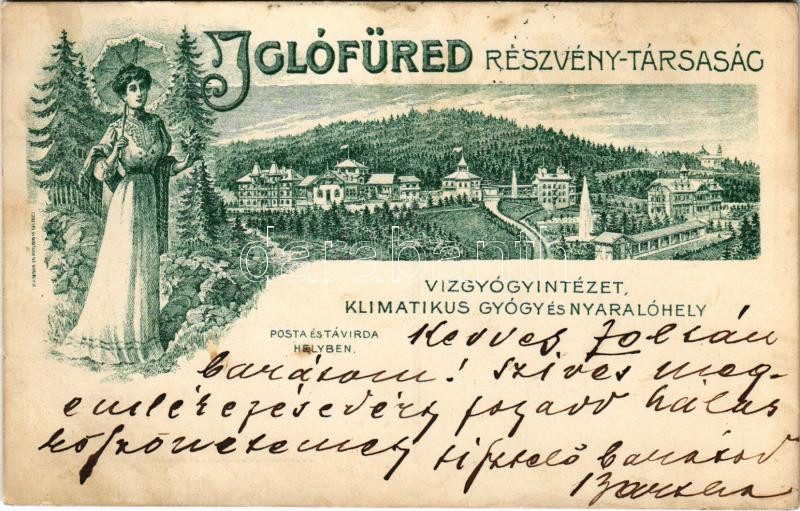 IGLÓFÜRED RÉSZVÉNY-TÁRSASÁG
darabanth
VIZGYÓGYINTÉZET,
KLIMATIKUS GYÓGY ÉS NYARALÓHELY
POSTA ÉS TÁVIRDA
HELYBEN.
Kedves Zoltán
barátom! Szíves meg-
emlékezésedért fogadd hálás
köszönetemet tisztelő barátod